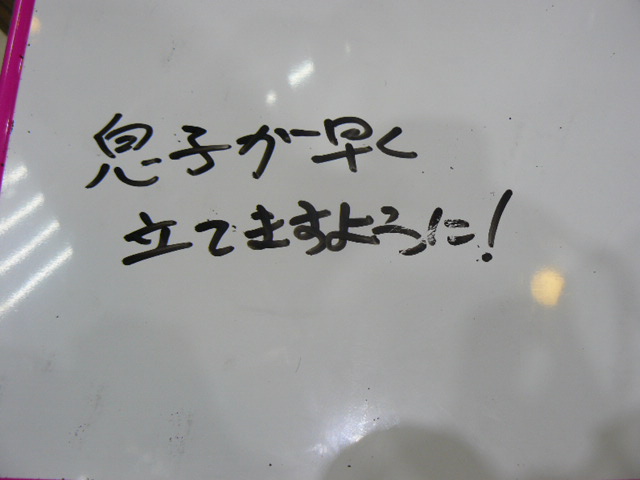 息子が早く
立てますように!